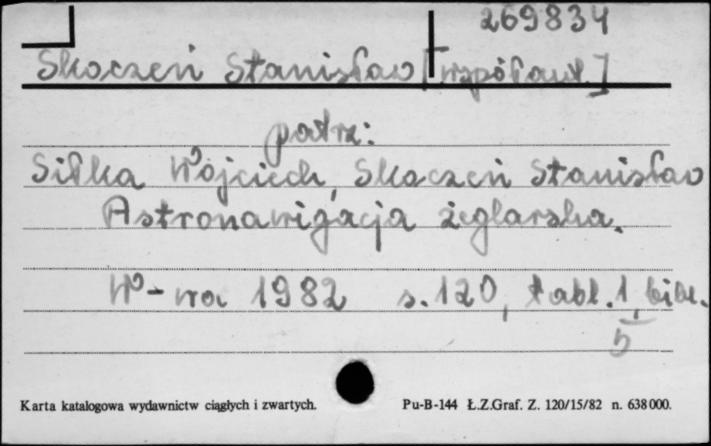 269834
Skoczeń Stanisław [współaut.]
patrz:
Siłka Wojciech, Skoczeń Stanisław
Astronawigacja żeglarska.
W-wa 1982 s. 120, tabl. 1, bibl.
5
Karta katalogowa wydawnictw ciągłych i zwartych. Pu-B-144 Ł.Z.Graf. Z. 120/15/82 n. 638000.